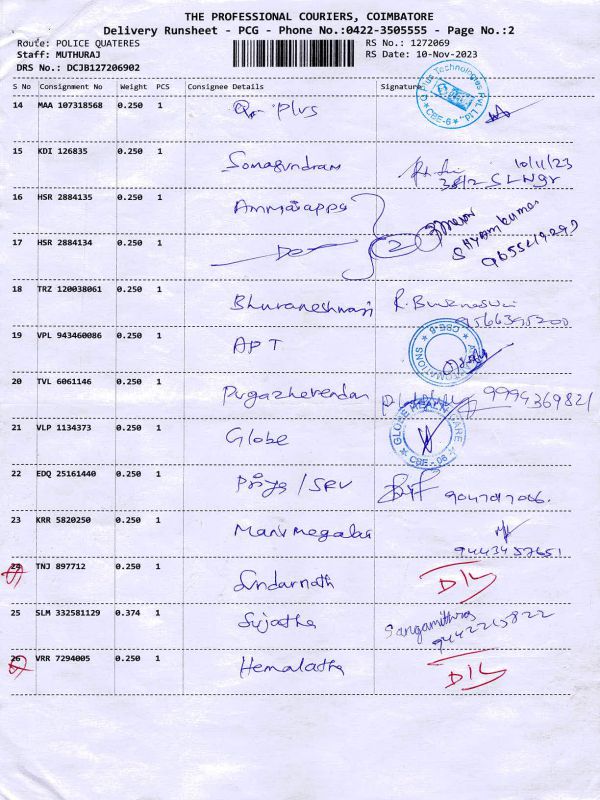 THE PROFESSIONAL COURIERS, COIMBATORE
Delivery Runsheet - PCG - Phone No.:0422-3505555 - Page No.:2
Route: POLICE QUATERES RS No.: 1272069
Staff: MUTHURAJ RS Date: 10-Nov-2023
DRS No.: DCJB127206902
S No Consignment No Weight PCS Consignee Details Signature
14 MAA 107318568 0.250 1 Q Plus
15 KDI 126835 0.250 1 Somasundram 10/11/23
SLNgr
16 HSR 2884135 0.250 1 Ammaiappa
17 HSR 2884134 0.250 1 Do 2 Shyamkumar
18 TRZ 120038061 0.250 1 Bhuvaneshwari
9566395200
19 VPL 943460086 0.250 1 APT
20 TVL 6061146 0.250 1 Pugazhevendan 9994369821
21 VLP 1134373 0.250 1 Globe GLOBE HEALTH CARE CBE-06
22 EDQ 25161440 0.250 1 Priya / SRV
23 KRR 5820250 0.250 1 Manimegalai
9443457651
24 TNJ 897712 0.250 1 Sundarnath D/L
25 SLM 332581129 0.374 1 Sujatha Sangamithra
9442215822
26 VRR 7294005 0.250 1 Hemalatha D/L